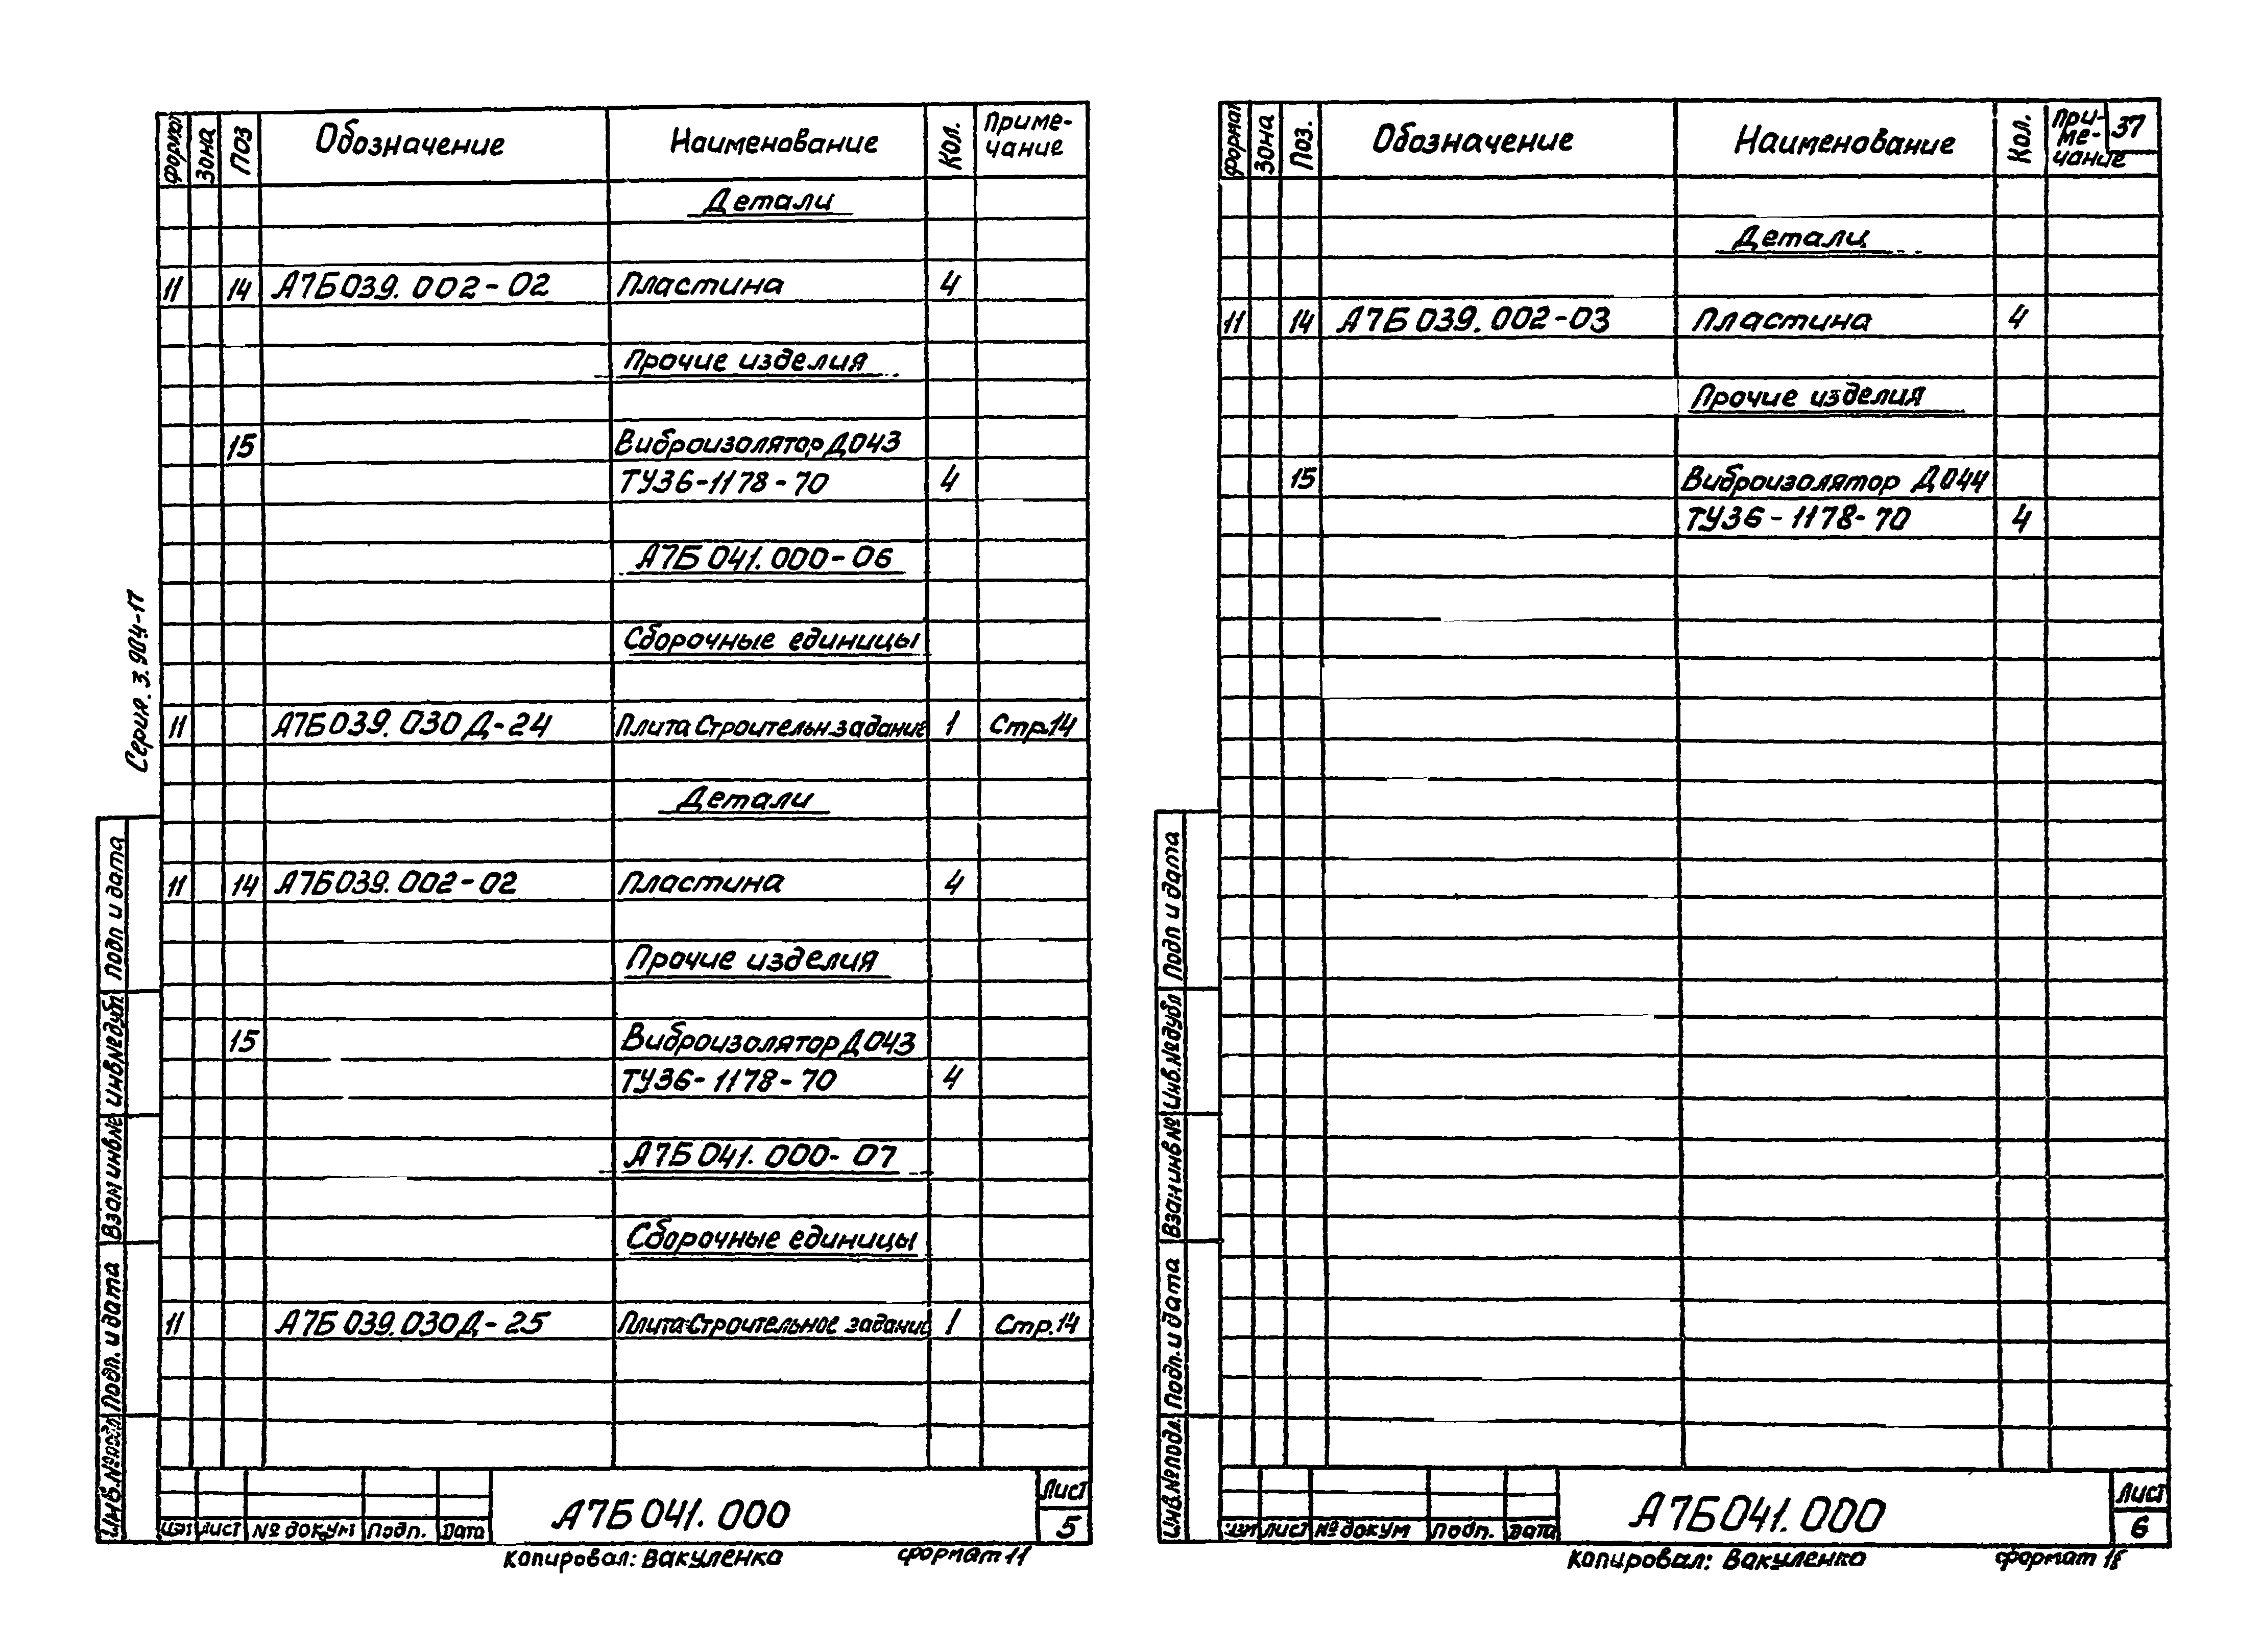 Серия. 3.904-17
Формат Зона Поз Обозначение Наименование Кол. Приме-
чание
Детали
11 14 А7Б039.002-02 Пластина 4
Прочие изделия
15 Виброизолятор Д043
ТУ36-1178-70 4
А7Б041.000-06
Сборочные единицы
11 А7Б039.030Д-24 Плита Строительн.задание 1 Стр.14
Детали
11 14 А7Б039.002-02 Пластина 4
Прочие изделия
15 Виброизолятор Д043
ТУ36-1178-70 4
А7Б041.000-07
Сборочные единицы
11 А7Б039.030Д-25 Плита Строительное задание 1 Стр.14
Подп и дата
Инв№дубл
Взам инв№
Подп. и дата
Инв.№подл.
Изм Лист № докум Подп. Дата
А7Б041.000
Лист
5
Копировал: Вакуленко формат 11
37
Формат Зона Поз. Обозначение Наименование Кол. При-
ме-
чание
Детали
11 14 А7Б039.002-03 Пластина 4
Прочие изделия
15 Виброизолятор Д044
ТУ36-1178-70 4
Подп и дата
Инв.№дубл
Взам инв№
Подп. и дата
Инв.№подл.
Изм Лист № докум Подп. Дата
А7Б041.000
Лист
6
Копировал: Вакуленко формат